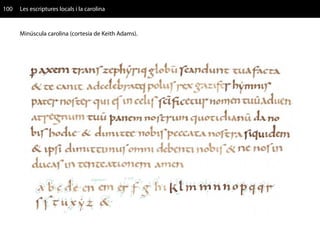 100 Les escriptures locals i la carolina
Minúscula carolina (cortesia de Keith Adams).
paxem transzephyriq globū scandunt tua facta
& te canit adcelebratq polus rex gazifer hymnis
pater noster qui es in celis scificetur nomen tuū adven
at regnum tuū panem nostrum quotidianū da no
bis hodie & dimitte nobis peccata nostra siquidem
& ipsi dimittimus omni debenti nobis & ne nos in
ducas in tentationem amen
a b c d e en em er f g hi k l m m n n o p q q r
s ſ t u x y z &